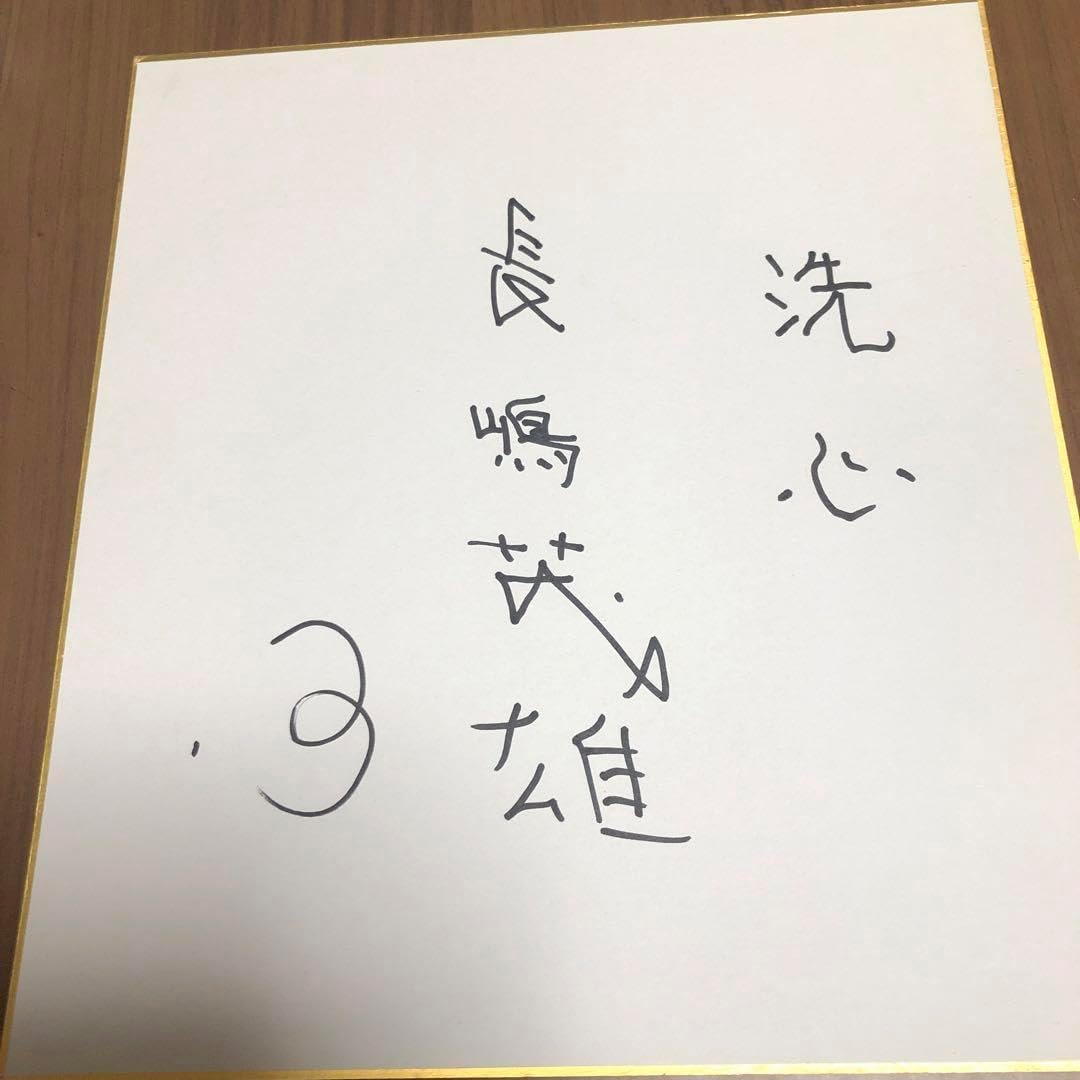 洗心
長嶋茂雄
3